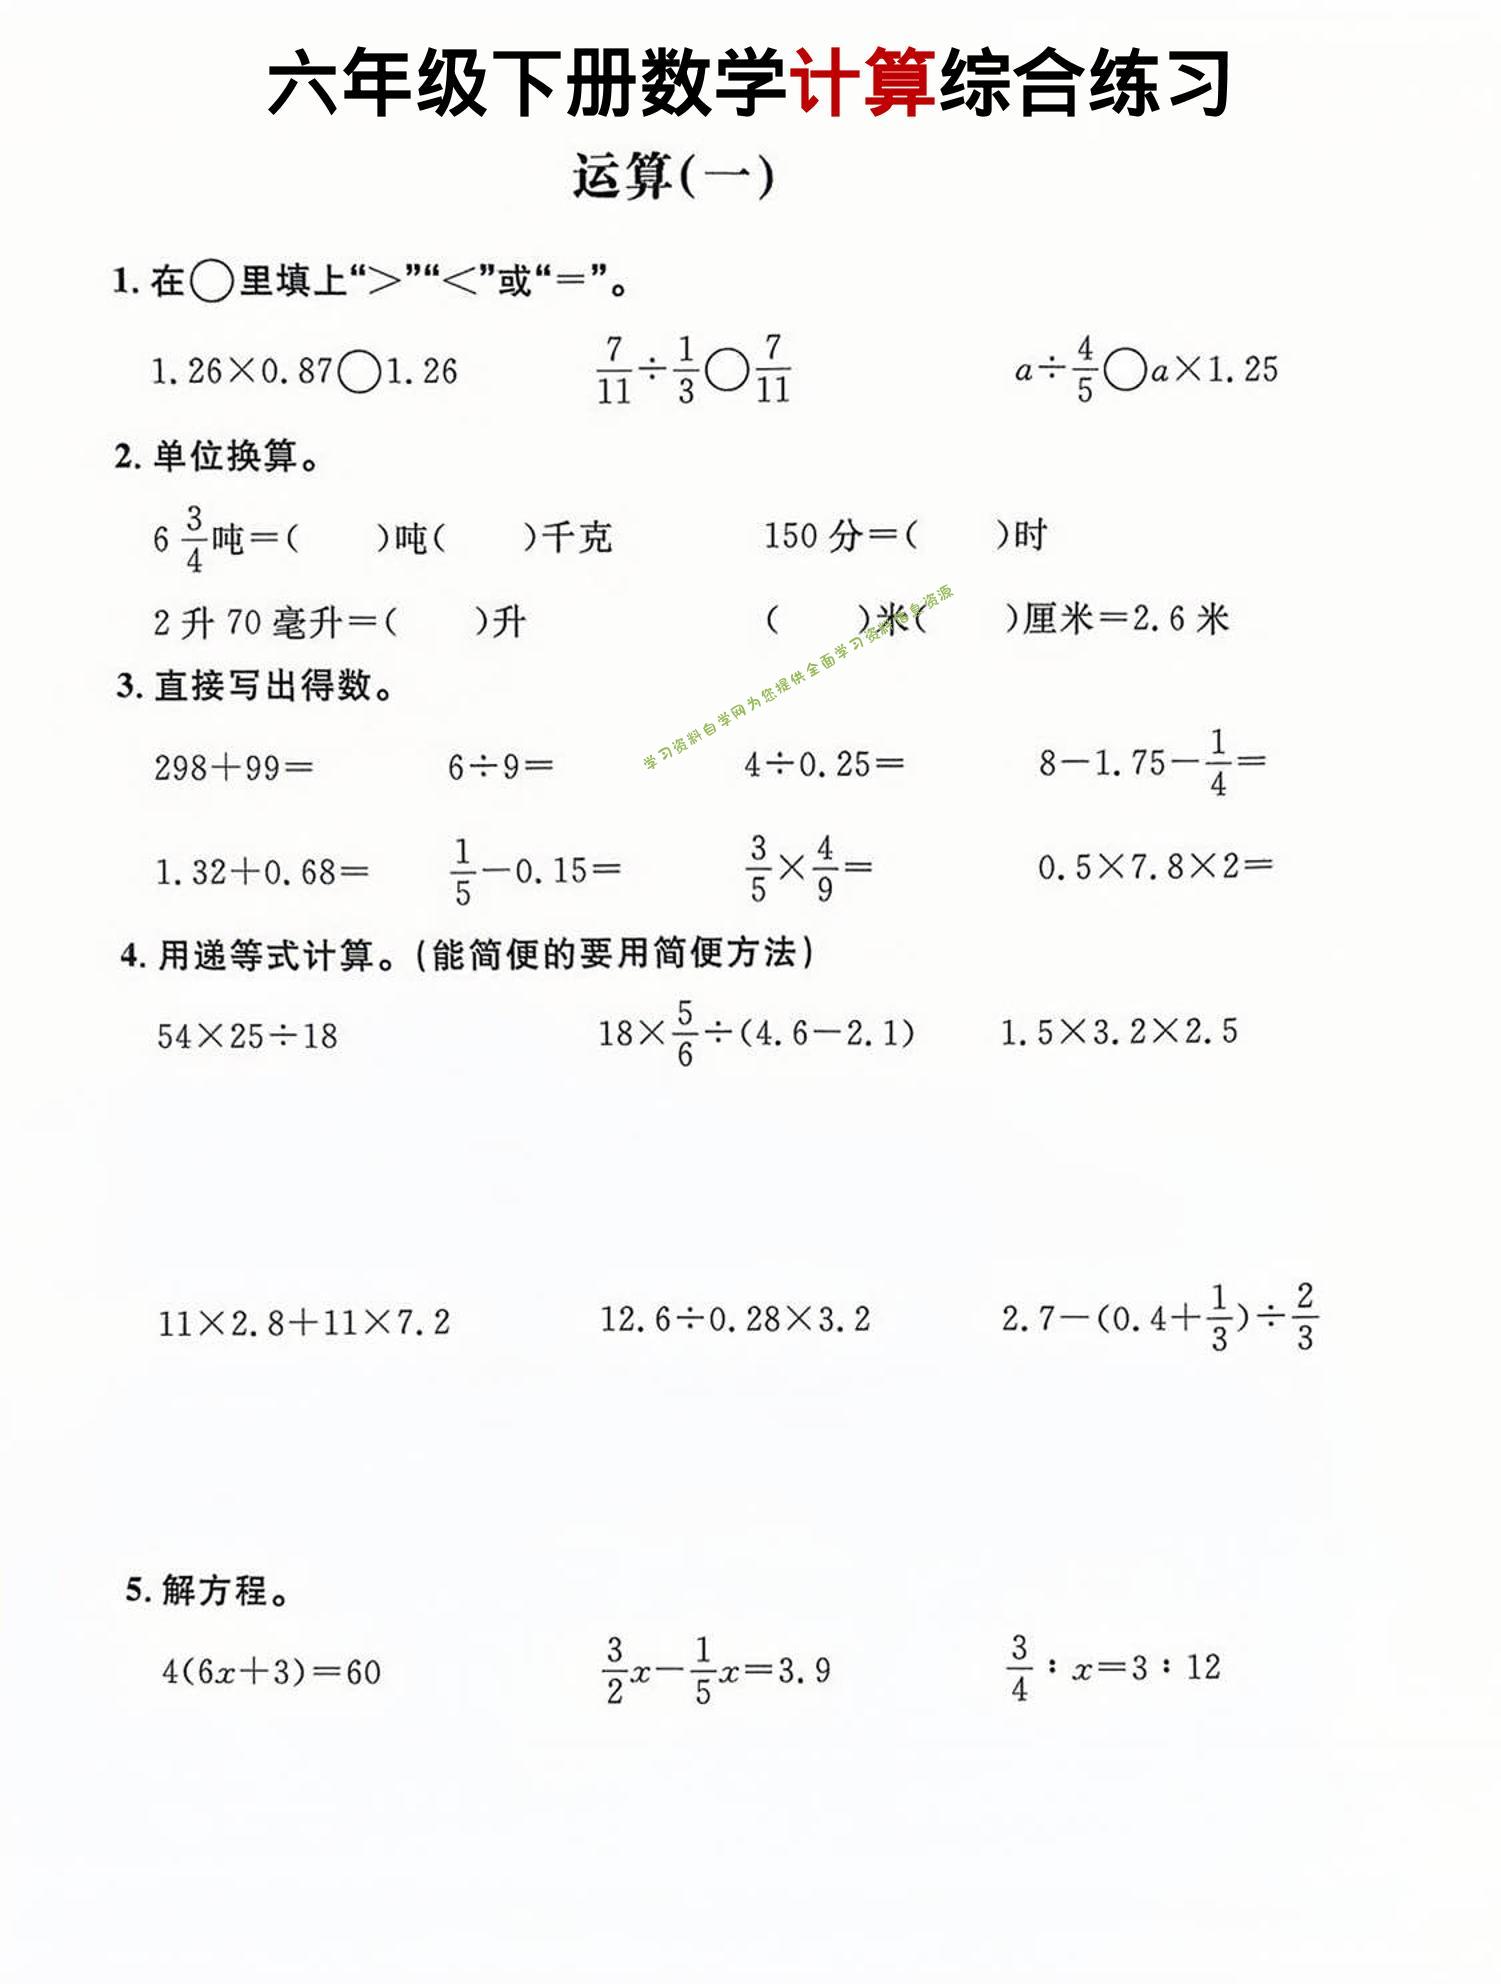 六年级下册数学计算综合练习
运算(一)
1. 在○里填上“>”“<”或“=”。
1.26×0.87○1.26 7/11÷1/3○7/11 a÷4/5○a×1.25
2. 单位换算。
6 3/4吨=( )吨( )千克 150分=( )时
2升70毫升=( )升 ( )米( )厘米=2.6米
学习资料自学网为您提供全面学习资料信息资源
3. 直接写出得数。
298+99= 6÷9= 4÷0.25= 8-1.75-1/4=
1.32+0.68= 1/5-0.15= 3/5×4/9= 0.5×7.8×2=
4. 用递等式计算。(能简便的要用简便方法)
54×25÷18 18×5/6÷(4.6-2.1) 1.5×3.2×2.5
11×2.8+11×7.2 12.6÷0.28×3.2 2.7-(0.4+1/3)÷2/3
5. 解方程。
4(6x+3)=60 3/2x-1/5x=3.9 3/4:x=3:12